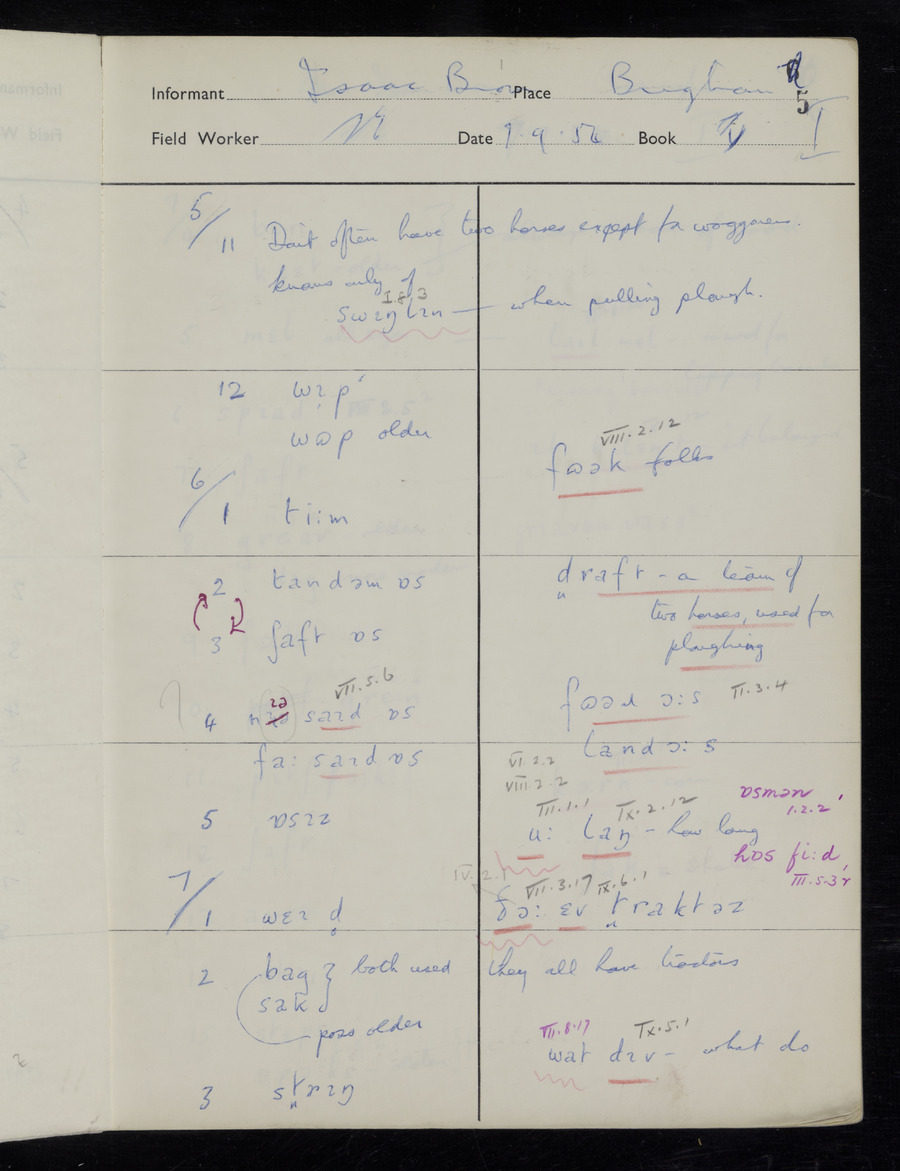 Informant Isaac Place Brigham
5
Field Worker Date 7.9.54 Book I
5/11 Don't often have two horses except for waggoners.
knows only of
I.8.3
swɪŋlɪn — when pulling plough.
12 wɪp
wɒp older
VIII.2.12
fɷək folks
6/1 ti:m
2 tandəm ɒs
draft - a team of
two horses, used for
ploughing
3 ʃaft ɒs
VII.5.6
4 saɪd ɒs
fɷəɹ ɔ:s II.3.4
fa: saɪd ɒs
landɔ:s
VI.2.2
VIII.2.2
VII.1.1 IX.2.12
ɒsmən
1.2.2
5 ɒsɪz
u: laŋ - how long
hɒs fi:d,
III.5.3
IV.2.1 VII.3.17 IX.6.1
7/1 wɛɪd
ðɔ: ɛv traktəz
2 bag } both used
sak
poss older
they all have tractors
VII.8.17 IX.5.1
wat dɪv - what do
3 strɪŋ